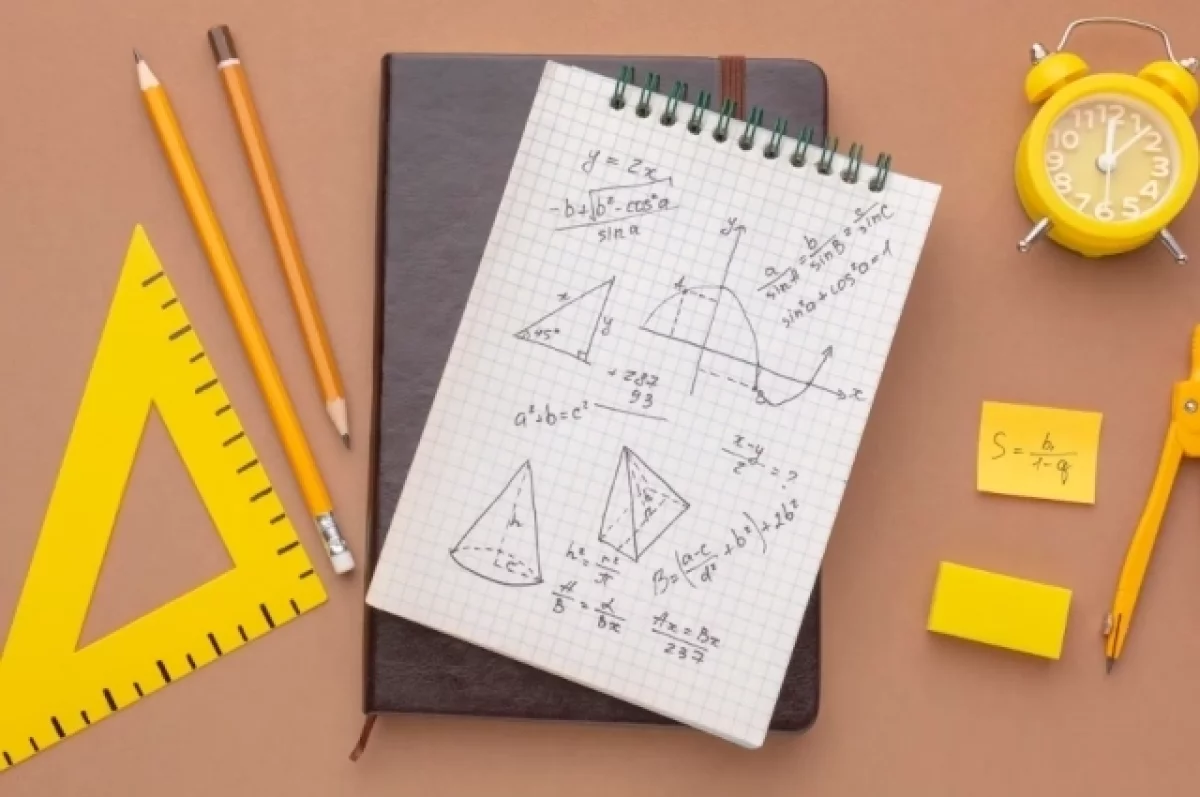 y = 2x
-b+√b²-cos²a
sin a
y
a/sin A = b/sin B = c/sin C
sin²a + cos²a = 1
A
x
45°
y
B
x
+ 287
93
a²+b=c²
x-y/2 = ?
h
h² = r²/π
B=(a-c/d² + b²)+2b²
A/B = α/Bx
Ax = Bx
237
S = b₁/1-q
12
1
2
3
4
5
6
7
8
9
10
11